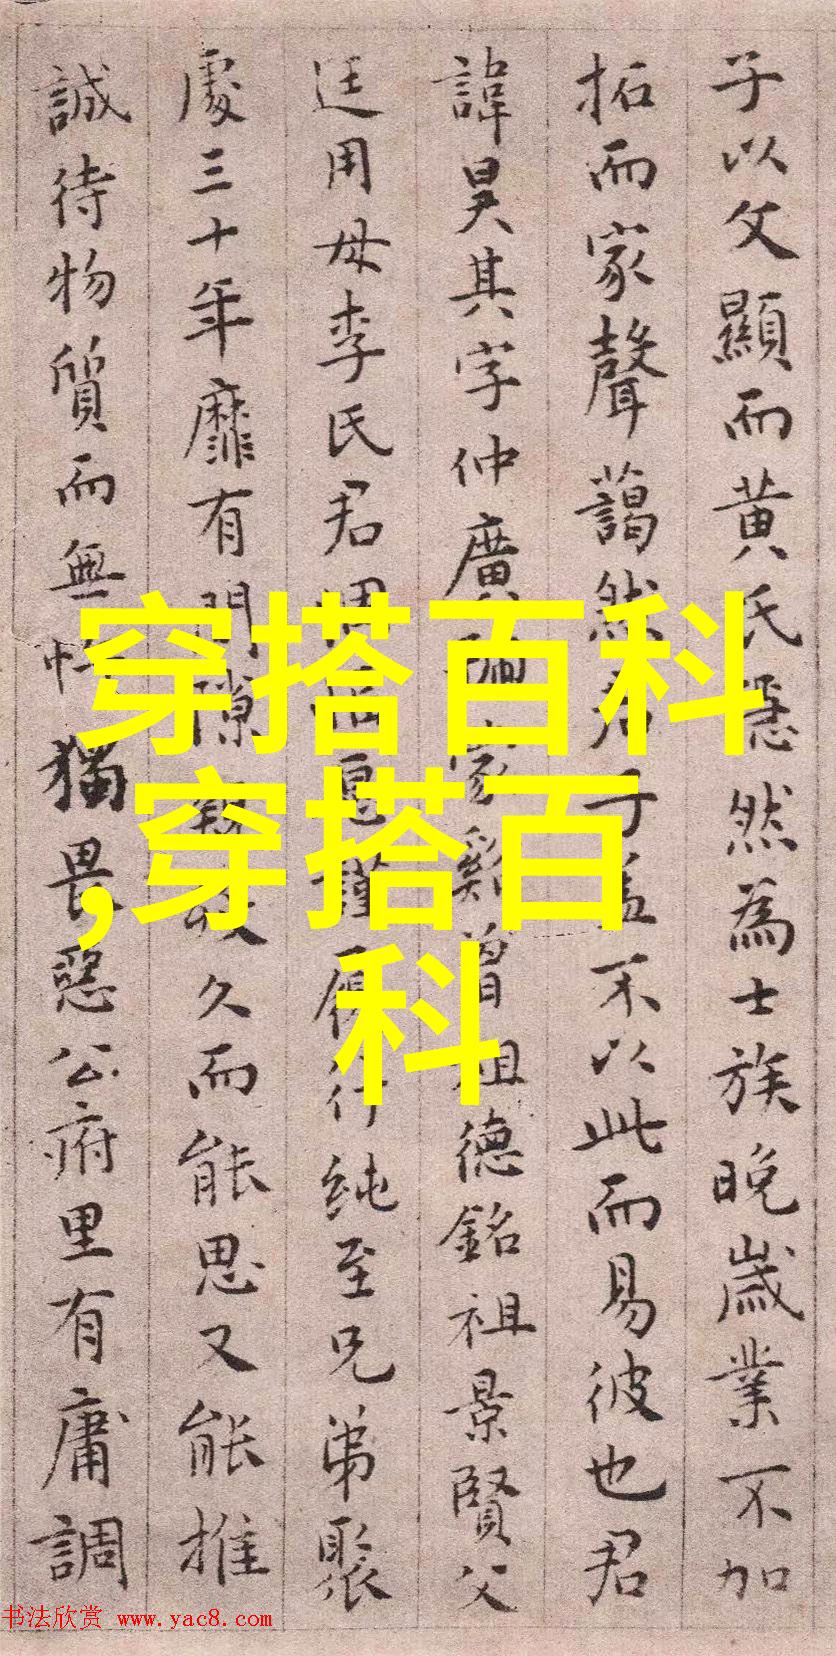 子以父顯而黄氏隱然為士族晚歲業不加
拓而家聲藹然君子盖不以此而易彼也君
諱昊其字仲廣 家谿曾祖德銘祖景賢父
廷用母李氏君 謹 行純至兄弟聚
處三十年靡有間隙 久而能思又能推
誠待物質而無 獨畏惡公府里有庸調
穿搭百科
,穿搭百
科
书法欣赏 www.yac8.com